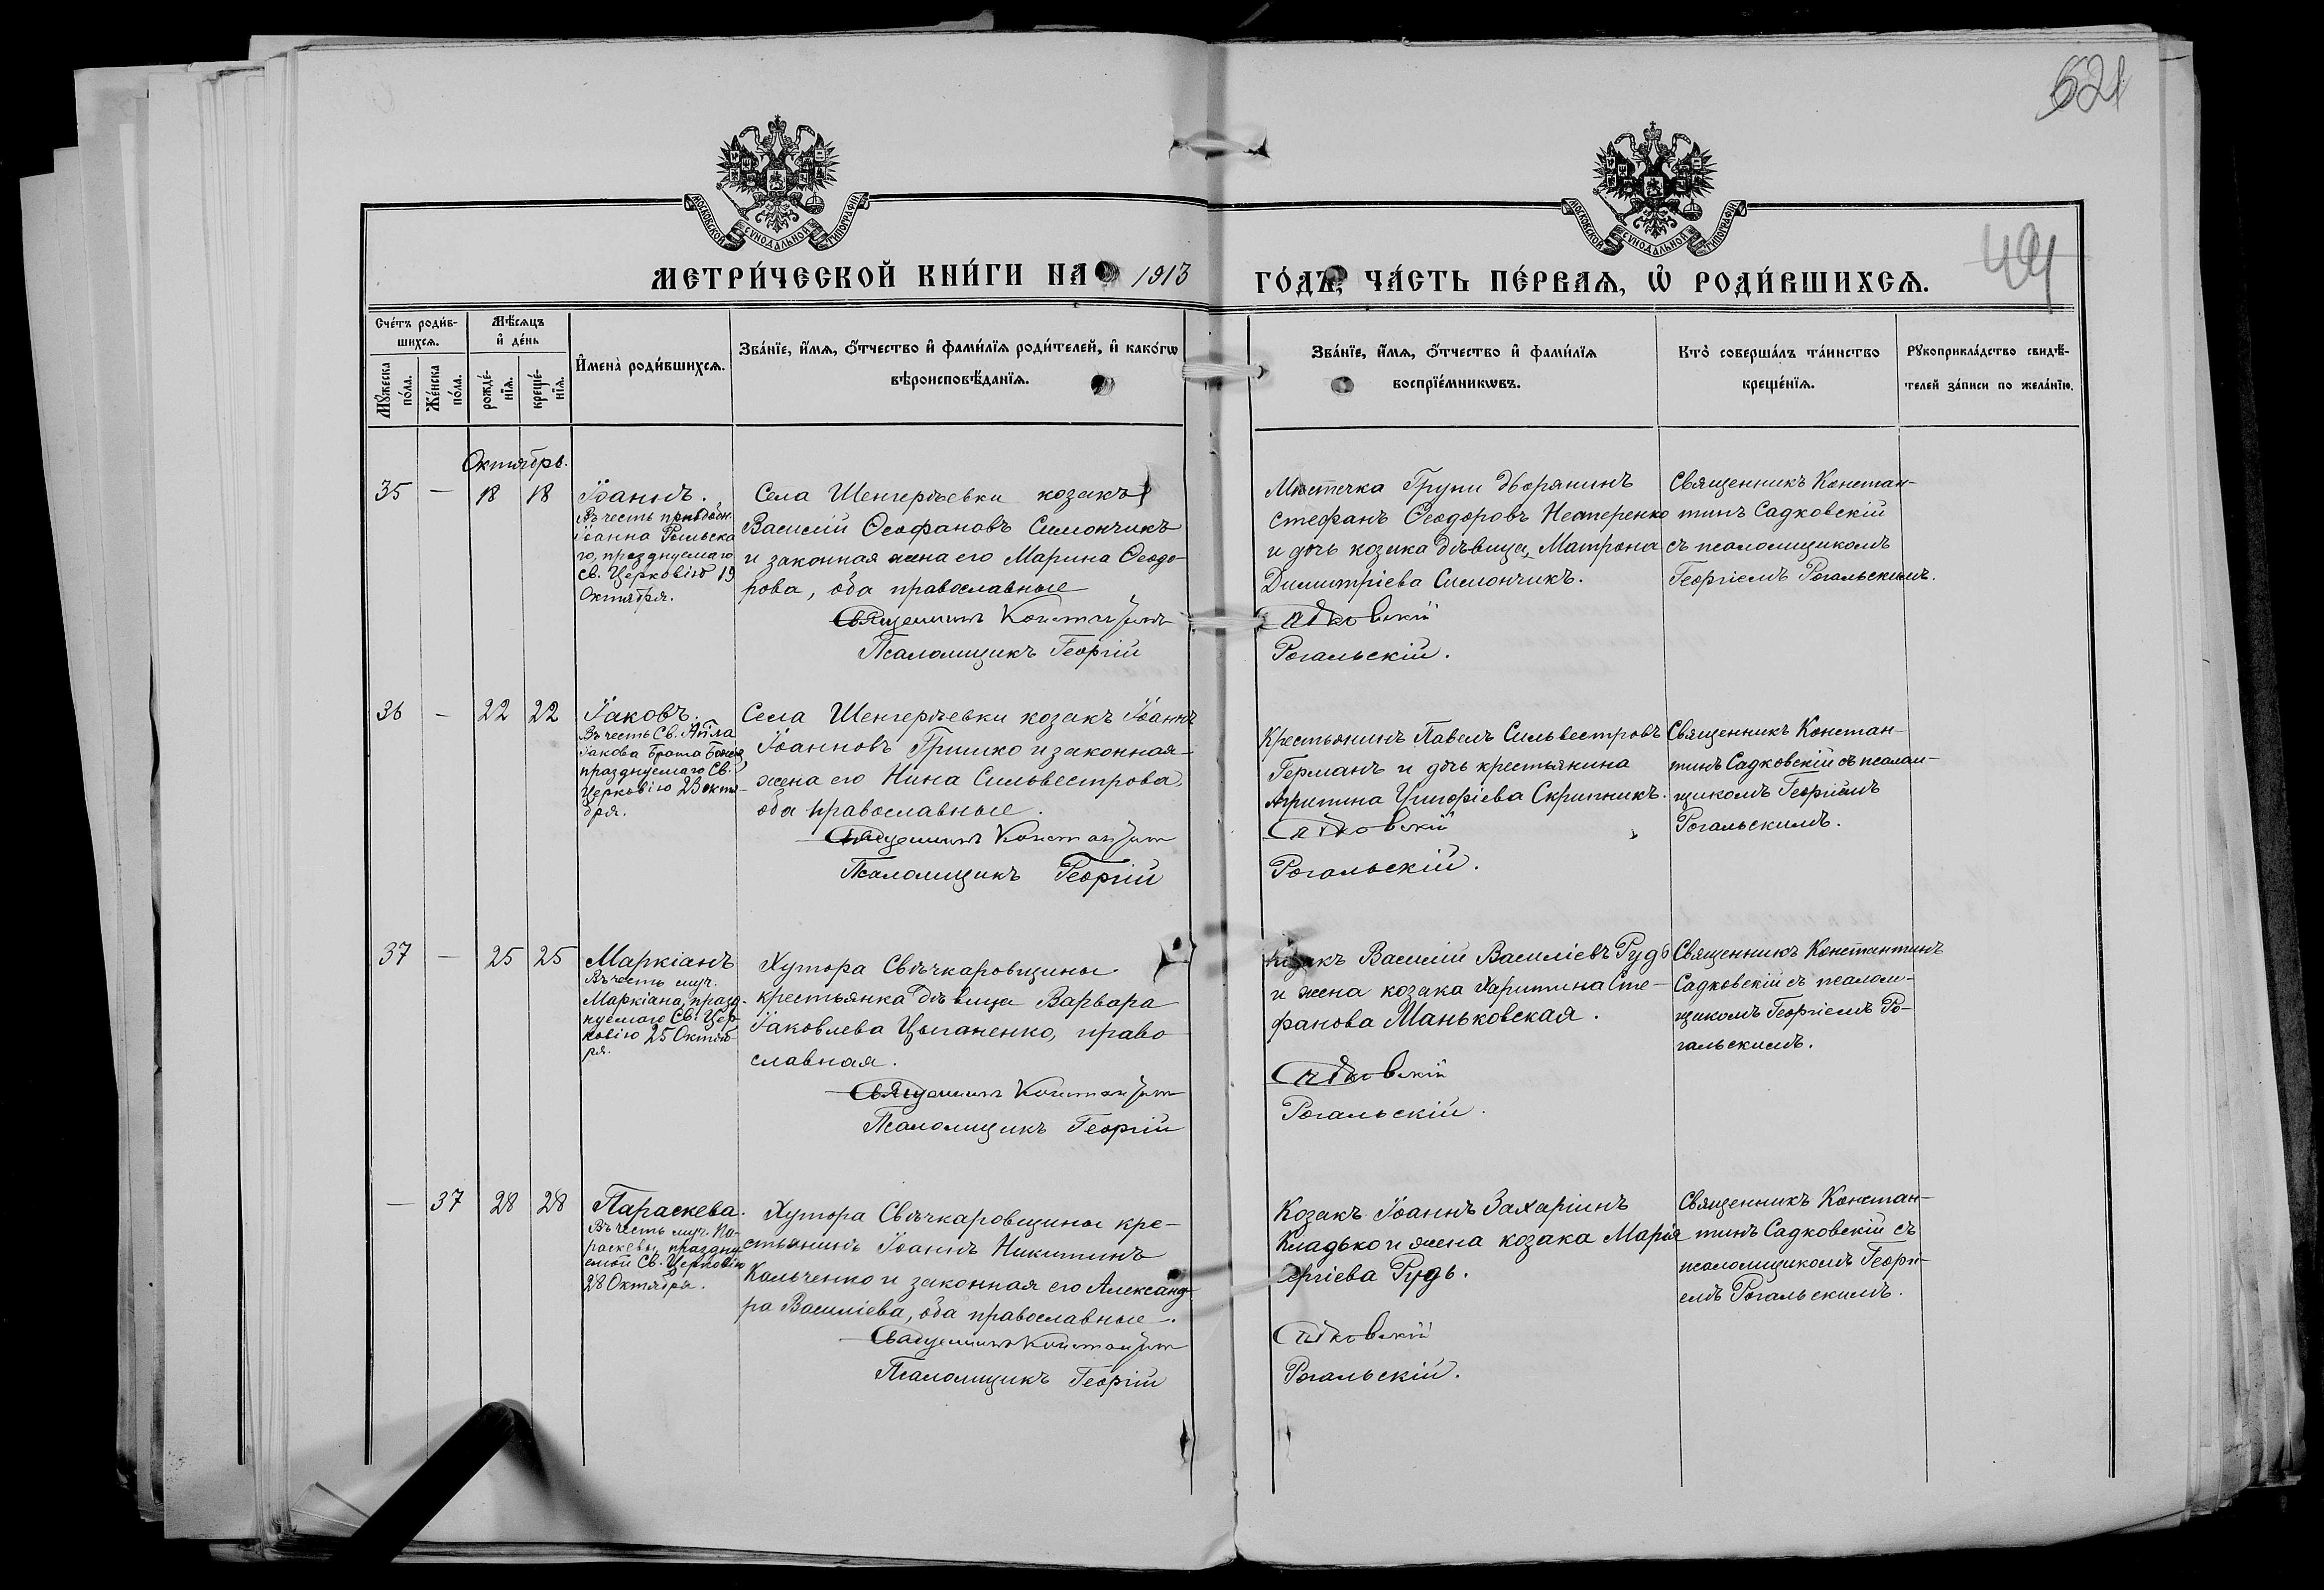 621
49
МОСКОВСКОЙ СѴНОДАЛЬНОЙ ТИПОГРАФІИ
МОСКОВСКОЙ СѴНОДАЛЬНОЙ ТИПОГРАФІИ
МЕТРИ́ЧЕСКОЙ КНИ́ГИ НА 1913 ГО́ДЪ, ЧА́СТЬ ПЕ́РВАѦ, Ѡ҆ РОДИ́ВШИХСѦ.
Сче́тъ роди́в-
шихсѧ.
Мꙋ́жеска
по́ла.
Же́нска
по́ла.
Мѣ́сѧцъ
и҆ де́нь
рожде́-
нїѧ.
креще́-
нїѧ.
И҆мена̀ роди́вшихсѧ.
Зва́нїе, и҆́мѧ, ѻ҆́тчество и҆ фами́лїѧ роди́телей, и҆ како́гѡ
вѣроисповѣ́данїѧ.
Зва́нїе, и҆́мѧ, ѻ҆́тчество и҆ фами́лїѧ
воспрїе́мникѡвъ.
Кто̀ соверша́лъ та́инство
креще́нїѧ.
Рꙋкоприкла́дство свидѣ́-
телей за́писи по жела́нїю.
Октябрь.
35 — 18 18
Іоаннъ.
Въ честь преподобн.
Іоанна Рыльска
го, празднуемаго
св. Церковію 19
Октября.
Села Шенгерѣевки козакъ
Василій Ѳеофановъ Симончикъ
и законная жена его Марина Ѳеодо-
рова, оба православные
Священникъ Константинъ
Псаломщикъ Георгій
Мѣстечка Груни дворянинъ
Стефанъ Ѳеодоровъ Нестеренко
и дочь козака дѣвица, Матрона
Димитріева Симончикъ.
Садковскій
Рогальскій.
Священникъ Констан-
тинъ Садковскій
съ псаломщикомъ
Георгіемъ Рогальскимъ.
36 — 22 22
Іаковъ.
Въ честь Св. Апла
Іакова брата Божія,
празднуемаго Св.
Церковію 23 октя-
бря.
Села Шенгерѣевки козакъ Іоаннъ
Іоанновъ Гришко и законная
жена его Нина Сильвестрова,
оба православные.
Священникъ Константинъ
Псаломщикъ Георгій
Крестьянинъ Павелъ Сильвестровъ
Германъ и дочь крестьянина
Агрипина Григоріева Скрипникъ.
Садковскій
Рогальскій.
Священникъ Констан-
тинъ Садковскій съ псалом-
щикомъ Георгіемъ
Рогальскимъ.
37 — 25 25
Маркіанъ
Въ честь муч.
Маркіана, празд-
нуемаго Св. Цер-
ковію 25 Октяб-
ря.
Хутора Свѣчкаровщины
крестьянка дѣвица Варвара
Іаковлева Цыганенко, право
славная.
Священникъ Константинъ
Псаломщикъ Георгій
Козакъ Василій Василіевъ Рудь
и жена козака Харитина Сте-
фанова Маньковская.
Садковскій
Рогальскій.
Священникъ Константинъ
Садковскій съ псалом-
щикомъ Георгіемъ Ро-
гальскимъ.
— 37 28 28
Параскева.
Въ честь муч. Па-
раскевы, праздну-
емой Св. Церковію
28 Октября.
Хутора Свѣчкаровщины кре-
стьянинъ Іоаннъ Никитинъ
Кальченко и законная его Александ-
ра Василіева, оба православные.
Священникъ Константинъ
Псаломщикъ Георгій
Козакъ Іоаннъ Захаріинъ
Кладько и жена козака Марія
Сергіева Рудь.
Садковскій
Рогальскій.
Священникъ Констан-
тинъ Садковскій съ
псаломщикомъ Георгі-
емъ Рогальскимъ.